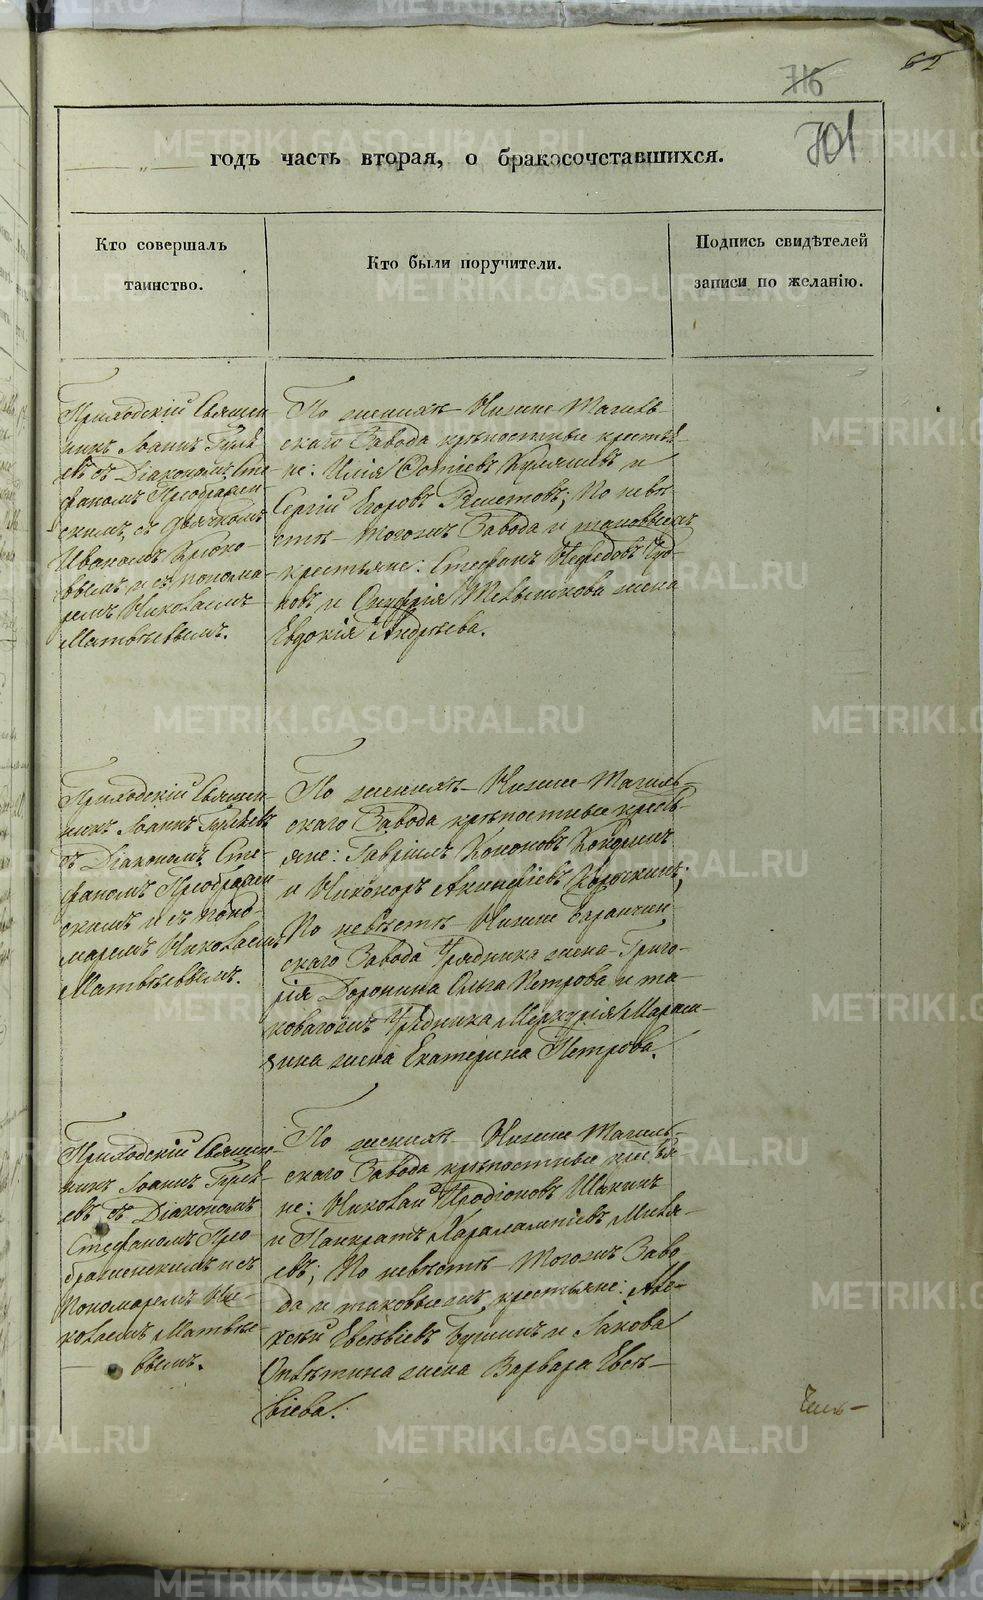 62
716
701
годъ часть вторая, о бракосочетавшихся.
Кто совершалъ
таинство.
Кто были поручители.
Подпись свидѣтелей
записи по желанію.
Приходскій Священ-
никъ Іоаннъ Гурь
евъ съ Діакономъ Сте
фаномъ Преображен
скимъ, съ дьячкомъ
Иваномъ Крюко-
вымъ и съ понома
ремъ Николаемъ
Матвѣевымъ.
По женихѣ Нижне Тагиль
скаго Завода крѣпостные крестья
не: Илія и
Сергій Егоровъ Решетовъ; По невѣ
стѣ тогожъ Завода и таковыежъ
крестьяне: Стефанъ Нефедовъ
и жена
Евдокія Андреева.
Приходскій Священ-
никъ Іоаннъ Гурьевъ
съ Діакономъ Сте-
фаномъ Преображен
скимъ и съ поно-
маремъ Николаемъ
Матвѣевымъ.
По женихѣ Нижне Тагиль-
скаго Завода крѣпостные кресть
яне: Гавріилъ Кононовъ
и Никоноръ Акинфіевъ
По невѣстѣ Нижне Баранчин
скаго Завода Урядника жена Григо-
рія Доронина Ольга Петрова и та-
ковагожъ Урядника Меркурія
жена Екатерина Петрова.
Приходскій Священ
никъ Іоаннъ Гурь-
евъ съ Діакономъ
Стефаномъ Прео
браженскимъ и съ
Пономаремъ Ни-
колаемъ Матвѣе-
вымъ.
По женихѣ Нижне Тагиль-
скаго Завода крѣпостные крестья
не: Николай Иродіоновъ Шакинъ
и Панкратъ Харалампіевъ Миля-
евъ; По невѣстѣ Тогожъ Заво
да и таковыежъ крестьяне: Але-
ксѣй Евсѣвіевъ и Іакова
жена Варвара Евсѣ-
віева.
METRIKI.GASO-URAL.RU